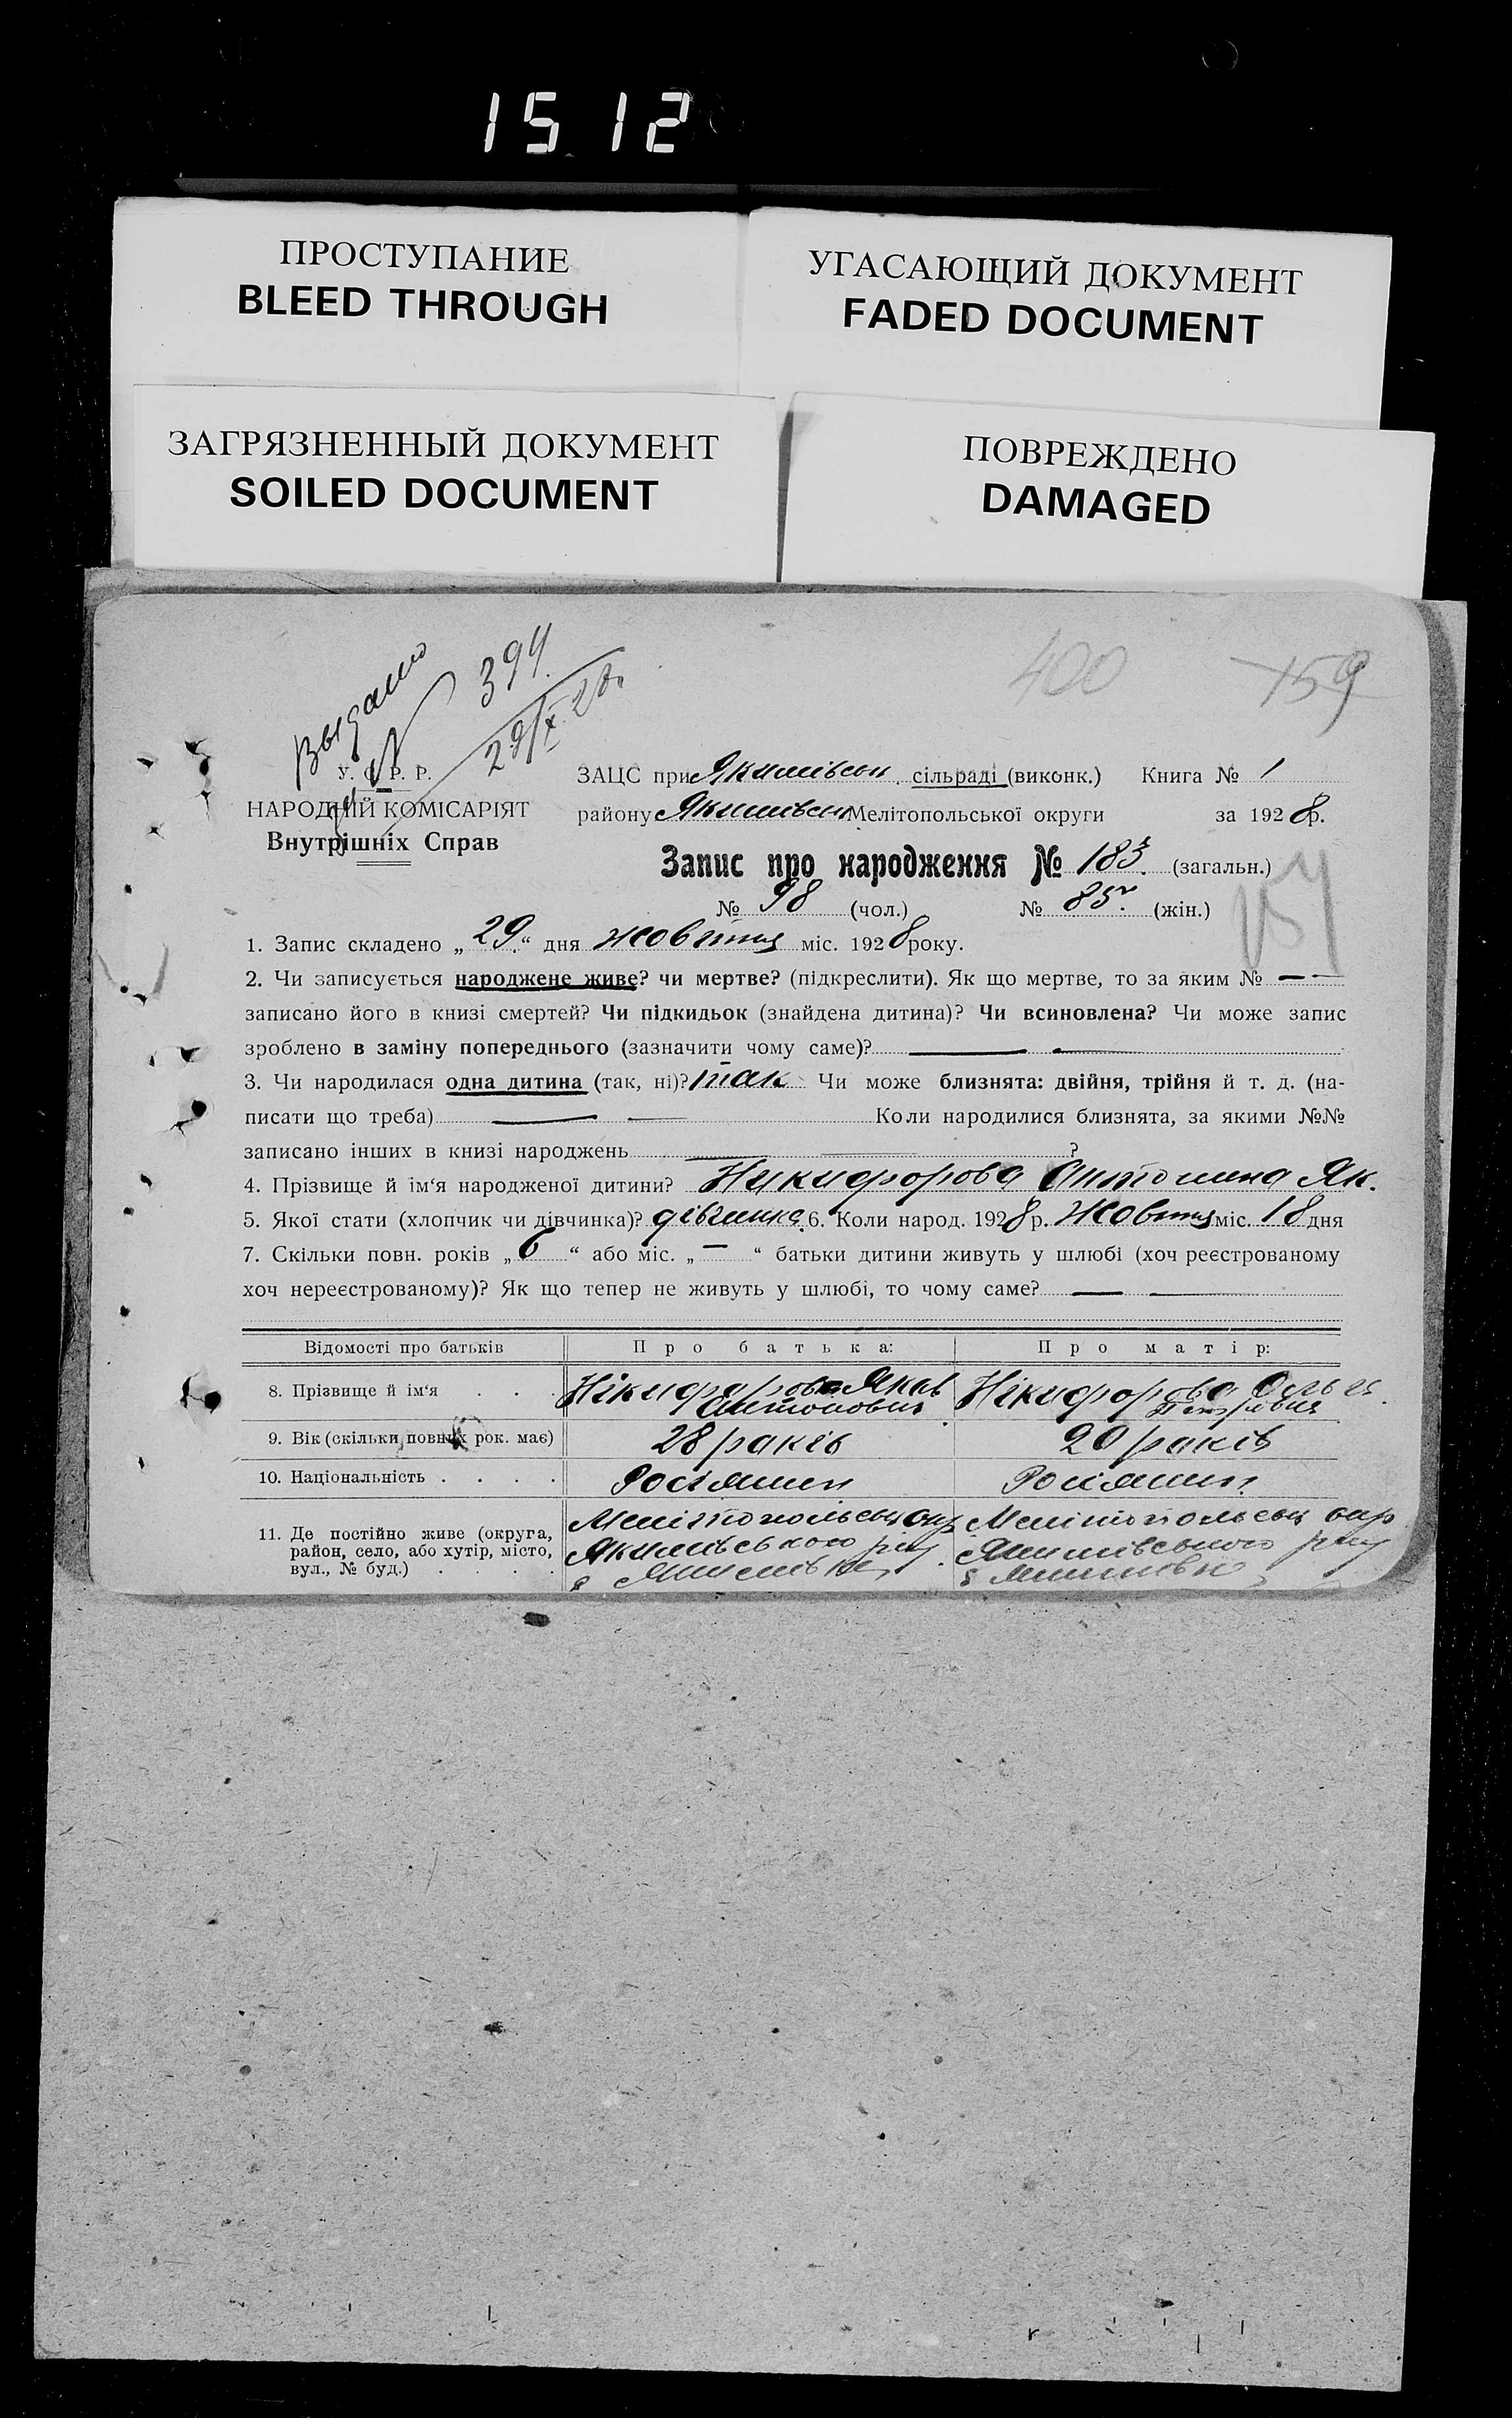 1512
ПРОСТУПАНИЕ
BLEED THROUGH
УГАСАЮЩИЙ ДОКУМЕНТ
FADED DOCUMENT
ЗАГРЯЗНЕННЫЙ ДОКУМЕНТ
SOILED DOCUMENT
ПОВРЕЖДЕНО
DAMAGED
400
159
Выдано
394
29/X 28
У. С. Р. Р.
НАРОДНІЙ КОМІСАРІЯТ
Внутрішніх Справ
ЗАЦС при Якимівськ. сільраді (виконк.) Книга № 1
району Якимівськ Мелітопольської округи за 1928 р.
Запис про народження № 183 (загальн.)
№ 98 (чол.) № 85 (жін.)
157
1. Запис складено „29“ дня жовтня міс. 1928 року.
2. Чи записується народжене живе? чи мертве? (підкреслити). Як що мертве, то за яким № — —
записано його в книзі смертей? Чи підкидьок (знайдена дитина)? Чи всиновлена? Чи може запис
зроблено в заміну попереднього (зазначити чому саме)? — —
3. Чи народилася одна дитина (так, ні)? так Чи може близнята: двійня, трійня й т. д. (на-
писати що треба) — — Коли народилися близнята, за якими №№
записано інших в книзі народжень — — ?
4. Прізвище й ім‘я народженої дитини? Никифорова Антонина Як.
5. Якої стати (хлопчик чи дівчинка)? дівчинка. 6. Коли народ. 1928 р. Жовтня міс. 18 дня
7. Скільки повн. років „6“ або міс. „—“ батьки дитини живуть у шлюбі (хоч реєстрованому
хоч нереєстрованому)? Як що тепер не живуть у шлюбі, то чому саме? — —
Відомості про батьків Про батька: Про матір:
8. Прізвище й ім‘я . . . Нікифоров Яков Антонович Нікифорова
9. Вік (скільки повних рок. має) 28 раків 20 раків
10. Національність . . . . Росіянин Росіянин
11. Де постійно живе (округа, Мелітопольськ окр Мелітопольськ окр
район, село, або хутір, місто, Якимівського рну Якимівського рну
вул., № буд.) . . . . с Якимівка с Якимівка